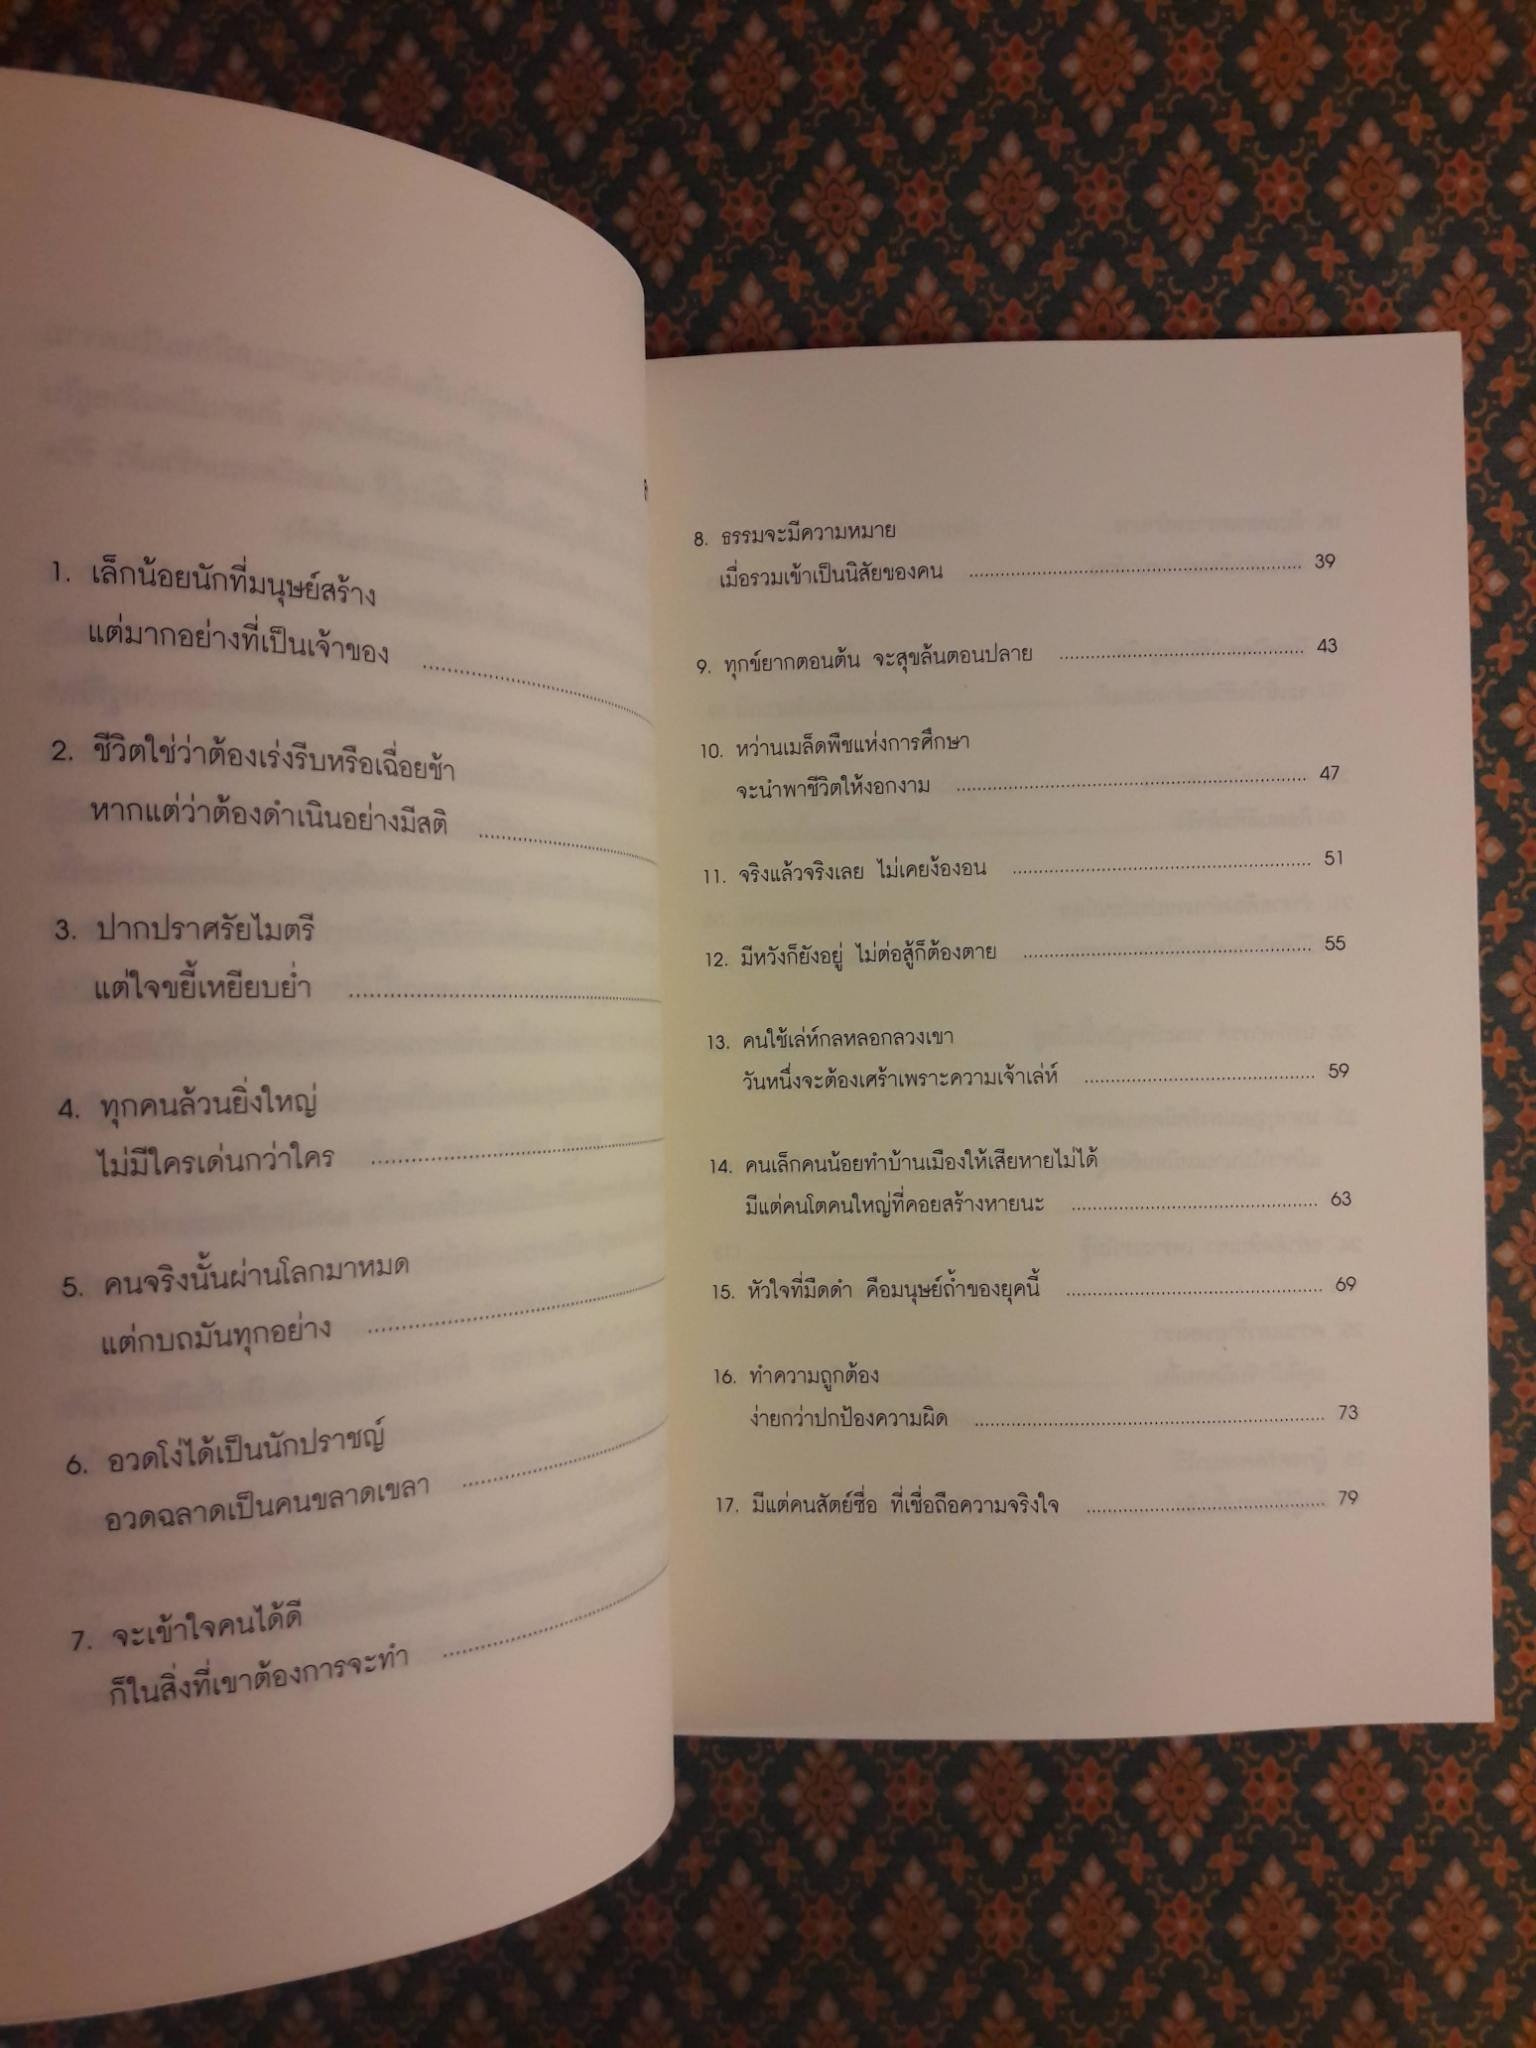 1. เล็กน้อยนักที่มนุษย์สร้าง
แต่มากอย่างที่เป็นเจ้าของ
2. ชีวิตใช่ว่าต้องเร่งรีบหรือเฉื่อยช้า
หากแต่ว่าต้องดำเนินอย่างมีสติ
3. ปากปราศรัยไมตรี
แต่ใจขยี้เหยียบย่ำ
4. ทุกคนล้วนยิ่งใหญ่
ไม่มีใครเด่นกว่าใคร
5. คนจริงนั้นผ่านโลกมาหมด
แต่กบถมันทุกอย่าง
6. อวดโง่ได้เป็นนักปราชญ์
อวดฉลาดเป็นคนขลาดเขลา
7. จะเข้าใจคนได้ดี
ก็ในสิ่งที่เขาต้องการจะทำ
8. ธรรมจะมีความหมาย
เมื่อรวมเข้าเป็นนิสัยของคน 39
9. ทุกข์ยากตอนต้น จะสุขล้นตอนปลาย 43
10. หว่านเมล็ดพืชแห่งการศึกษา
จะนำพาชีวิตให้งอกงาม 47
11. จริงแล้วจริงเลย ไม่เคยง้องอน 51
12. มีหวังก็ยังอยู่ ไม่ต่อสู้ก็ต้องตาย 55
13. คนใช้เล่ห์กลหลอกลวงเขา
วันหนึ่งจะต้องเศร้าเพราะความเจ้าเล่ห์ 59
14. คนเล็กคนน้อยทำบ้านเมืองให้เสียหายไม่ได้
มีแต่คนโตคนใหญ่ที่คอยสร้างหายนะ 63
15. หัวใจที่มืดดำ คือมนุษย์ถ้ำของยุคนี้ 69
16. ทำความถูกต้อง
ง่ายกว่าปกป้องความผิด 73
17. มีแต่คนสัตย์ซื่อ ที่เชื่อถือความจริงใจ 79